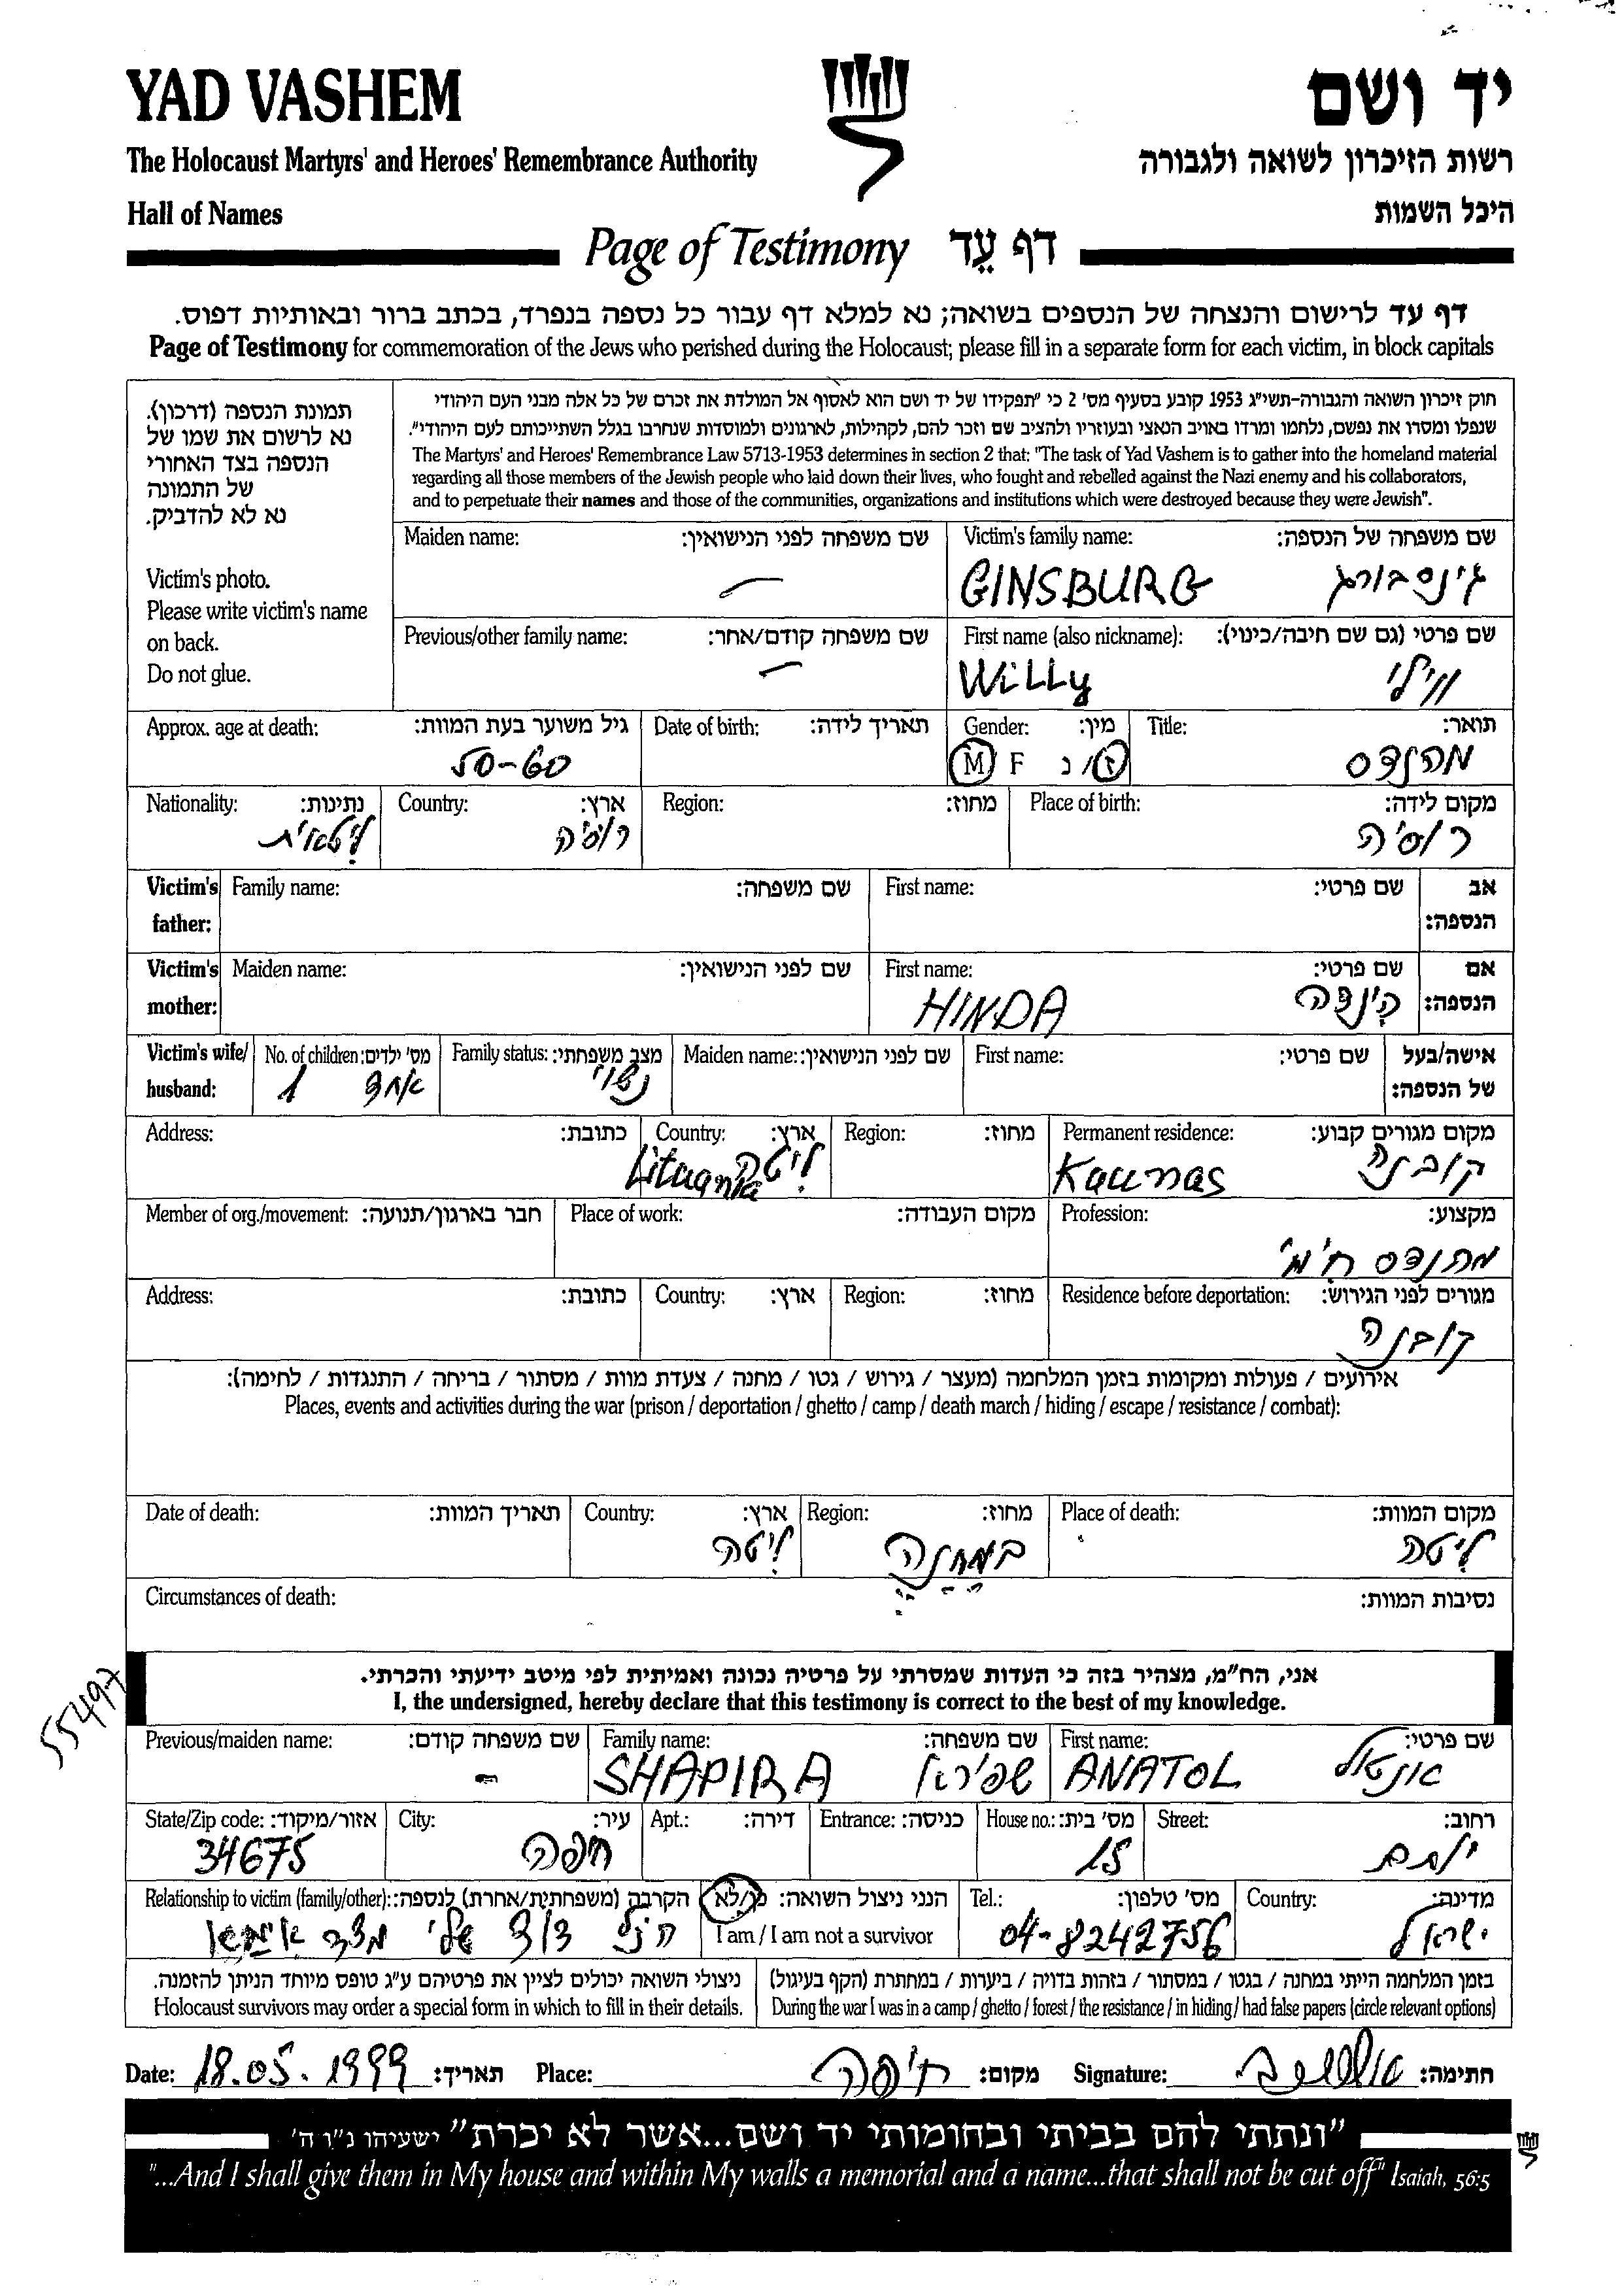 YAD VASHEM
יד ושם
The Holocaust Martyrs' and Heroes' Remembrance Authority
רשות הזיכרון לשואה ולגבורה
Hall of Names
היכל השמות
Page of Testimony דף עֵד
דף עד לרישום והנצחה של הנספים בשואה; נא למלא דף עבור כל נספה בנפרד, בכתב ברור ובאותיות דפוס.
Page of Testimony for commemoration of the Jews who perished during the Holocaust; please fill in a separate form for each victim, in block capitals
תמונת הנספה (דרכון).
נא לרשום את שמו של
הנספה בצד האחורי
של התמונה
נא לא להדביק.
Victim's photo.
Please write victim's name
on back.
Do not glue.
חוק זיכרון השואה והגבורה-תשי"ג 1953 קובע בסעיף מס' 2 כי "תפקידו של יד ושם הוא לאסוף אל המולדת את זכרם של כל אלה מבני העם היהודי
שנפלו ומסרו את נפשם, נלחמו ומרדו באויב הנאצי ובעוזריו ולהציב שם וזכר להם, לקהילות, לארגונים ולמוסדות שנחרבו בגלל השתייכותם לעם היהודי".
The Martyrs' and Heroes' Remembrance Law 5713-1953 determines in section 2 that: "The task of Yad Vashem is to gather into the homeland material
regarding all those members of the Jewish people who laid down their lives, who fought and rebelled against the Nazi enemy and his collaborators,
and to perpetuate their names and those of the communities, organizations and institutions which were destroyed because they were Jewish".
Maiden name: שם משפחה לפני הנישואין: Victim's family name: שם משפחה של הנספה:
— GINSBURG גינסבורג
Previous/other family name: שם משפחה קודם/אחר: First name (also nickname): שם פרטי (גם שם חיבה/כינוי):
— Willy ווילי
Approx. age at death: גיל משוער בעת המוות: Date of birth: תאריך לידה: Gender: מין: Title: תואר:
50-60 M F ז/נ מהנדס
Nationality: נתינות: Country: ארץ: Region: מחוז: Place of birth: מקום לידה:
ליטאית רוסיה רוסיה
Victim's father: Family name: שם משפחה: First name: שם פרטי: אב הנספה:
Victim's mother: Maiden name: שם לפני הנישואין: First name: שם פרטי: אם הנספה:
HINDA הינדה
Victim's wife/husband: No. of children: מס' ילדים: Family status: מצב משפחתי: Maiden name: שם לפני הנישואין: First name: שם פרטי: אישה/בעל של הנספה:
1 אחד נשוי
Address: כתובת: Country: ארץ: Region: מחוז: Permanent residence: מקום מגורים קבוע:
Lituania ליטה Kaunas קובנה
Member of org./movement: חבר בארגון/תנועה: Place of work: מקום העבודה: Profession: מקצוע:
מהנדס חימי
Address: כתובת: Country: ארץ: Region: מחוז: Residence before deportation: מגורים לפני הגירוש:
קובנה
אירועים / פעולות ומקומות בזמן המלחמה (מעצר / גירוש / גטו / מחנה / צעדת מוות / מסתור / בריחה / התנגדות / לחימה):
Places, events and activities during the war (prison / deportation / ghetto / camp / death march / hiding / escape / resistance / combat):
Date of death: תאריך המוות: Country: ארץ: Region: מחוז: Place of death: מקום המוות:
ליטה במחנה ליטה
Circumstances of death: נסיבות המוות:
55497
אני, הח"מ, מצהיר בזה כי העדות שמסרתי על פרטיה נכונה ואמיתית לפי מיטב ידיעתי והכרתי.
I, the undersigned, hereby declare that this testimony is correct to the best of my knowledge.
Previous/maiden name: שם משפחה קודם: Family name: שם משפחה: First name: שם פרטי:
- SHAPIRA שפירא ANATOL אנטול
State/Zip code: אזור/מיקוד: City: עיר: Apt.: דירה: Entrance: כניסה: House no.: מס' בית: Street: רחוב:
34675 חיפה 15
Relationship to victim (family/other): הקרבה (משפחתית/אחרת) לנספה: הנני ניצול השואה: כן/לא Tel.: מס' טלפון: Country: מדינה:
הנל דוד שלי מצד אימא I am / I am not a survivor 04-8242756 ישראל
ניצולי השואה יכולים לציין את פרטיהם ע"ג טופס מיוחד הניתן להזמנה.
Holocaust survivors may order a special form in which to fill in their details.
בזמן המלחמה הייתי במחנה / בגטו / במסתור / בזהות בדויה / ביערות / במחתרת (הקף בעיגול)
During the war I was in a camp / ghetto / forest / the resistance / in hiding / had false papers (circle relevant options)
Date: 18.05.1999 תאריך: Place: חיפה מקום: Signature: חתימה:
"ונתתי להם בביתי ובחומותי יד ושם...אשר לא יכרת" ישעיהו נ"ו ה'
"...And I shall give them in My house and within My walls a memorial and a name...that shall not be cut off" Isaiah, 56:5